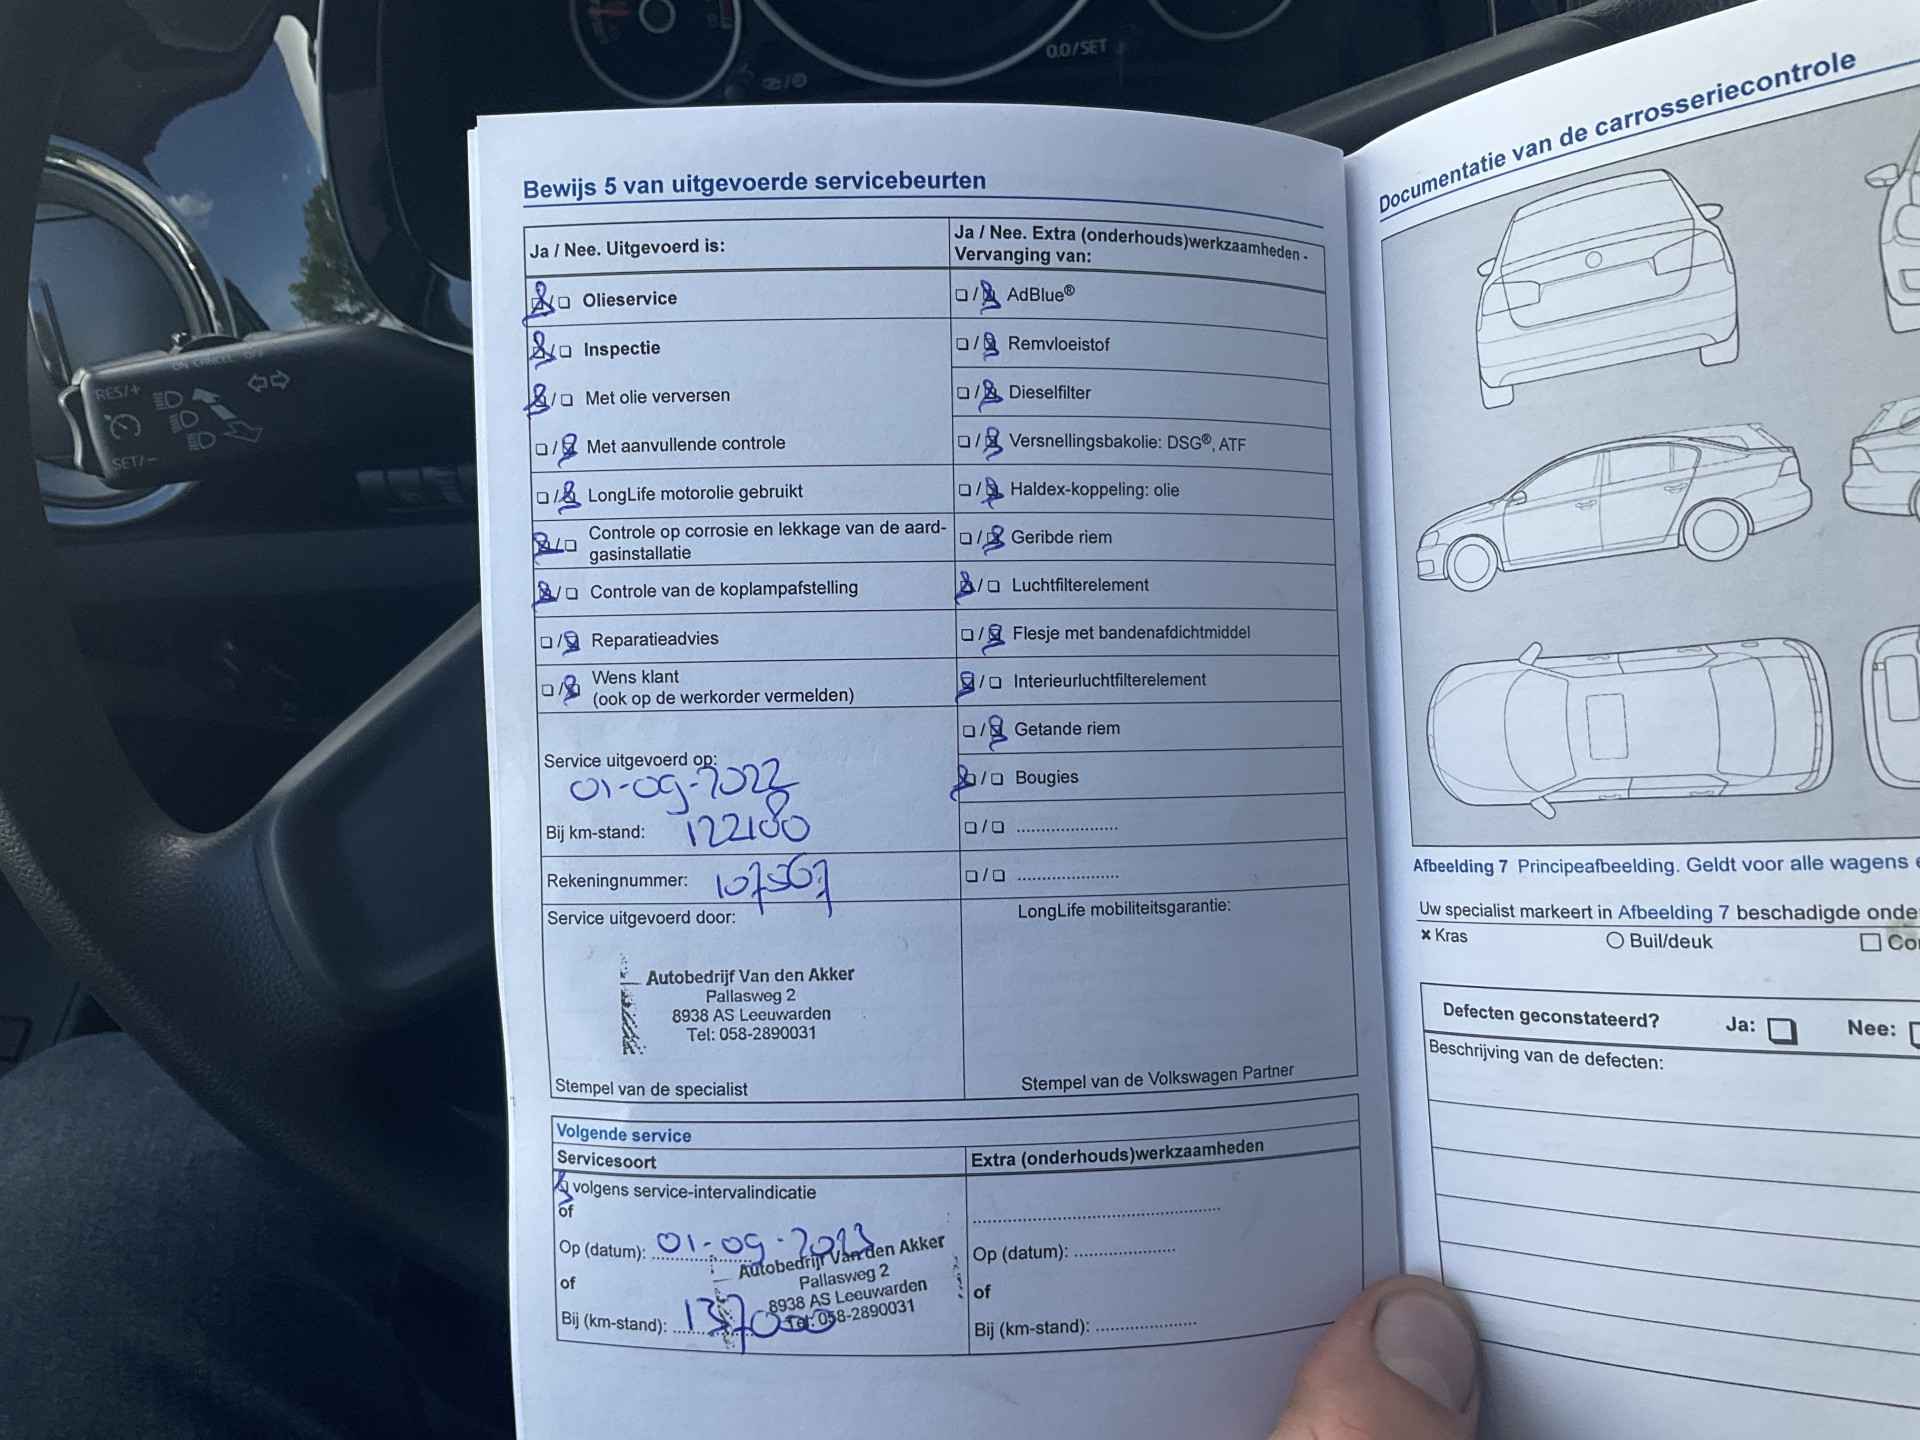 0.0/SET
RES/+
SET/-
Bewijs 5 van uitgevoerde servicebeurten
Ja / Nee. Uitgevoerd is:
Olieservice
Inspectie
Met olie verversen
Met aanvullende controle
LongLife motorolie gebruikt
Controle op corrosie en lekkage van de aard-
gasinstallatie
Controle van de koplampafstelling
Reparatieadvies
Wens klant
(ook op de werkorder vermelden)
Service uitgevoerd op:
01-09-2022
Bij km-stand: 122180
Rekeningnummer: 107567
Service uitgevoerd door:
Autobedrijf Van den Akker
Pallasweg 2
8938 AS Leeuwarden
Tel: 058-2890031
Stempel van de specialist
Ja / Nee. Extra (onderhouds)werkzaamheden -
Vervanging van:
AdBlue®
Remvloeistof
Dieselfilter
Versnellingsbakolie: DSG®, ATF
Haldex-koppeling: olie
Geribde riem
Luchtfilterelement
Flesje met bandenafdichtmiddel
Interieurluchtfilterelement
Getande riem
Bougies
LongLife mobiliteitsgarantie:
Stempel van de Volkswagen Partner
Volgende service
Servicesoort
volgens service-intervalindicatie
of
Op (datum): 01-09-2023
of
Bij (km-stand): 137000
Autobedrijf Van den Akker
Pallasweg 2
8938 AS Leeuwarden
Tel: 058-2890031
Extra (onderhouds)werkzaamheden
Op (datum):
of
Bij (km-stand):
Documentatie van de carrosseriecontrole
Afbeelding 7 Principeafbeelding. Geldt voor alle wagens
Uw specialist markeert in Afbeelding 7 beschadigde onde
× Kras
Buil/deuk
Defecten geconstateerd? Ja: Nee:
Beschrijving van de defecten: